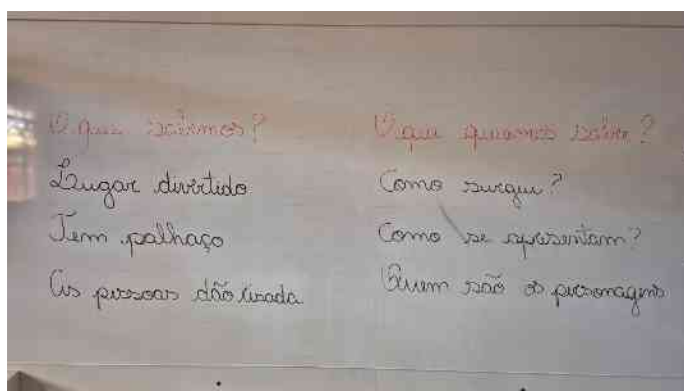 O que sabemos?
Lugar divertido
Tem palhaço
As pessoas dão risada
O que queremos saber?
Como surgiu?
Como se apresentam?
Quem são os personagens